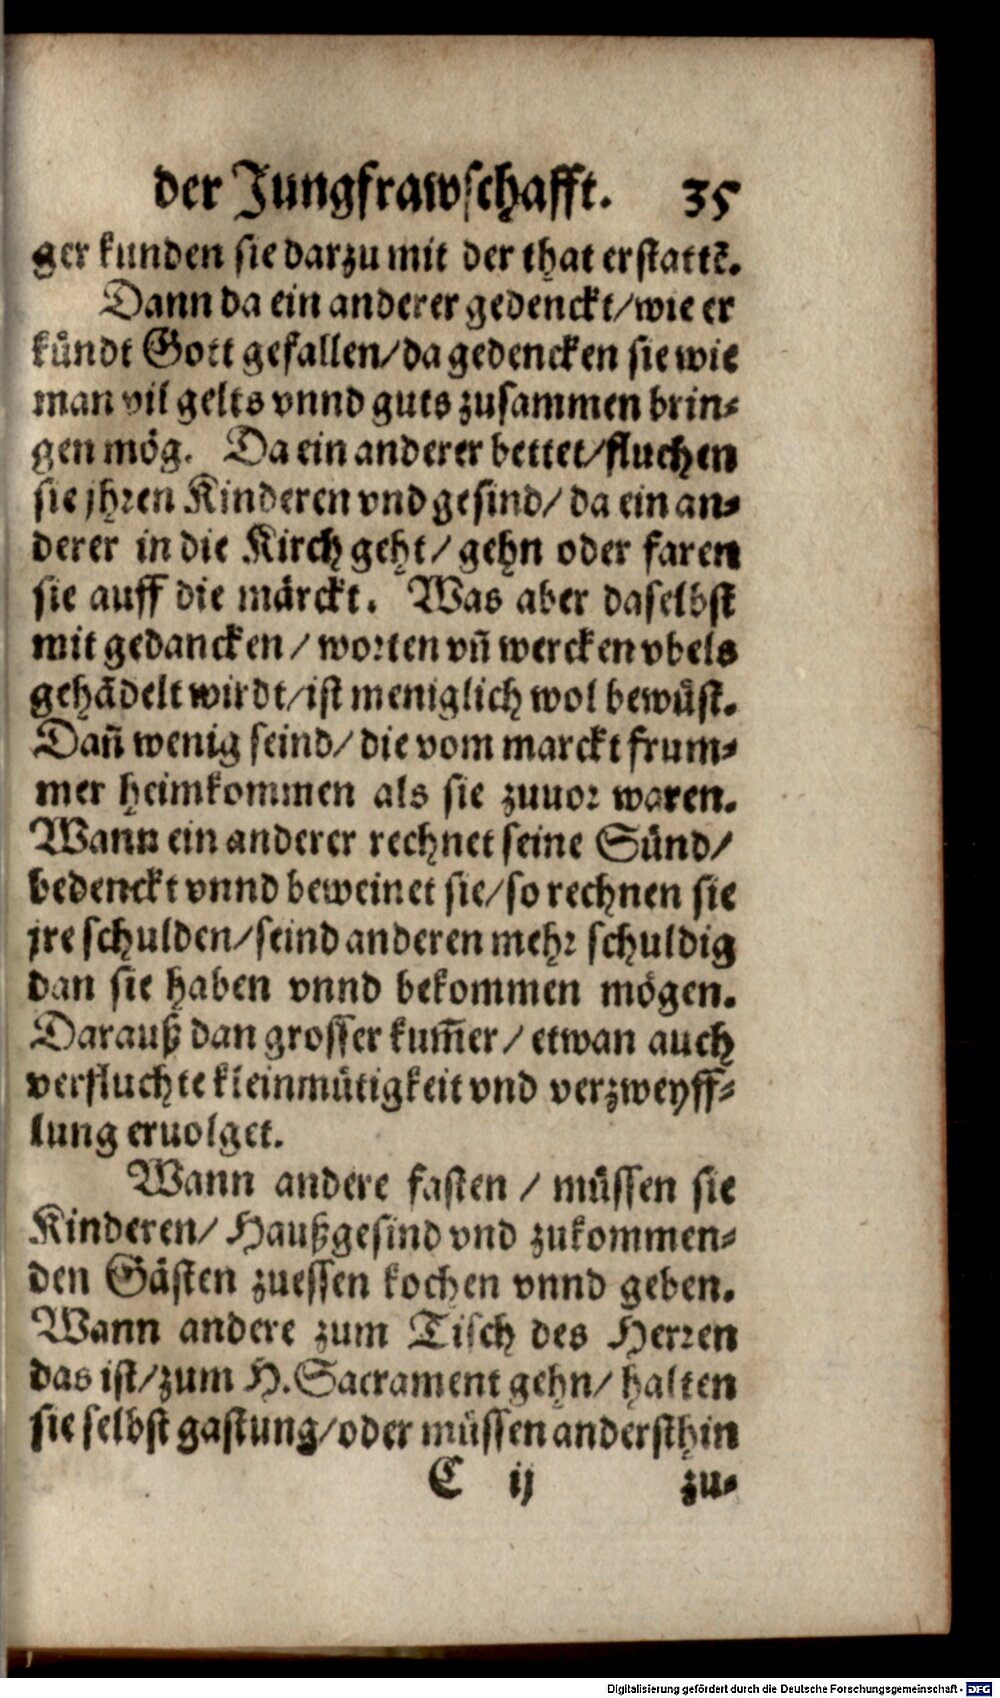 der Jungfrawschafft. 35
ger kunden sie darzu mit der that erstattẽ.
Dann da ein anderer gedenckt/wie er
kündt Gott gefallen/da gedencken sie wie
man vil gelts vnnd guts zusammen brin⸗
gen mög. Da ein anderer bettet/fluchen
sie jhren Kinderen vnd gesind/ da ein an⸗
derer in die Kirch geht/ gehn oder faren
sie auff die märckt. Was aber daselbst
mit gedancken/ worten vñ wercken vbels
gehãdelt wirdt/ist meniglich wol bewüst.
Dañ wenig seind/ die vom marckt frum⸗
mer heimkommen als sie zuuor waren.
Wann ein anderer rechnet seine Sünd/
bedenckt vnnd beweinet sie/so rechnen sie
jre schulden/seind anderen mehr schuldig
dan sie haben vnnd bekommen mögen.
Darauß dan grosser kum̃er/ etwan auch
verfluchte kleinmütigkeit vnd verzweyff⸗
lung eruolget.
Wann andere fasten / müssen sie
Kinderen/ Haußgesind vnd zukommen⸗
den Gästen zuessen kochen vnnd geben.
Wann andere zum Tisch des Herren
das ist/zum H. Sacrament gehn/ halten
sie selbst gastung/oder müssen andersthin
C ij zu⸗
Digitalisierung gefördert durch die Deutsche Forschungsgemeinschaft - DFG